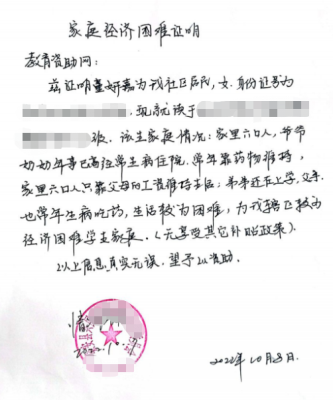 家庭经济困难证明
教育资助网：
兹证明董妍嘉为我社区居民，女，身份证号为
现就读于
班。该生家庭情况：家里六口人，爷爷
奶奶年事已高经常生病住院，常年靠药物维持，
家里六口人只靠父母的工资维持生活；弟弟还在上学，父亲
也常年生病吃药，生活较为困难，为我辖区较为
经济困难学生家庭。（无享受其它补贴政策）。
以上信息真实无误，望予以资助。
情
2022年10月8日.